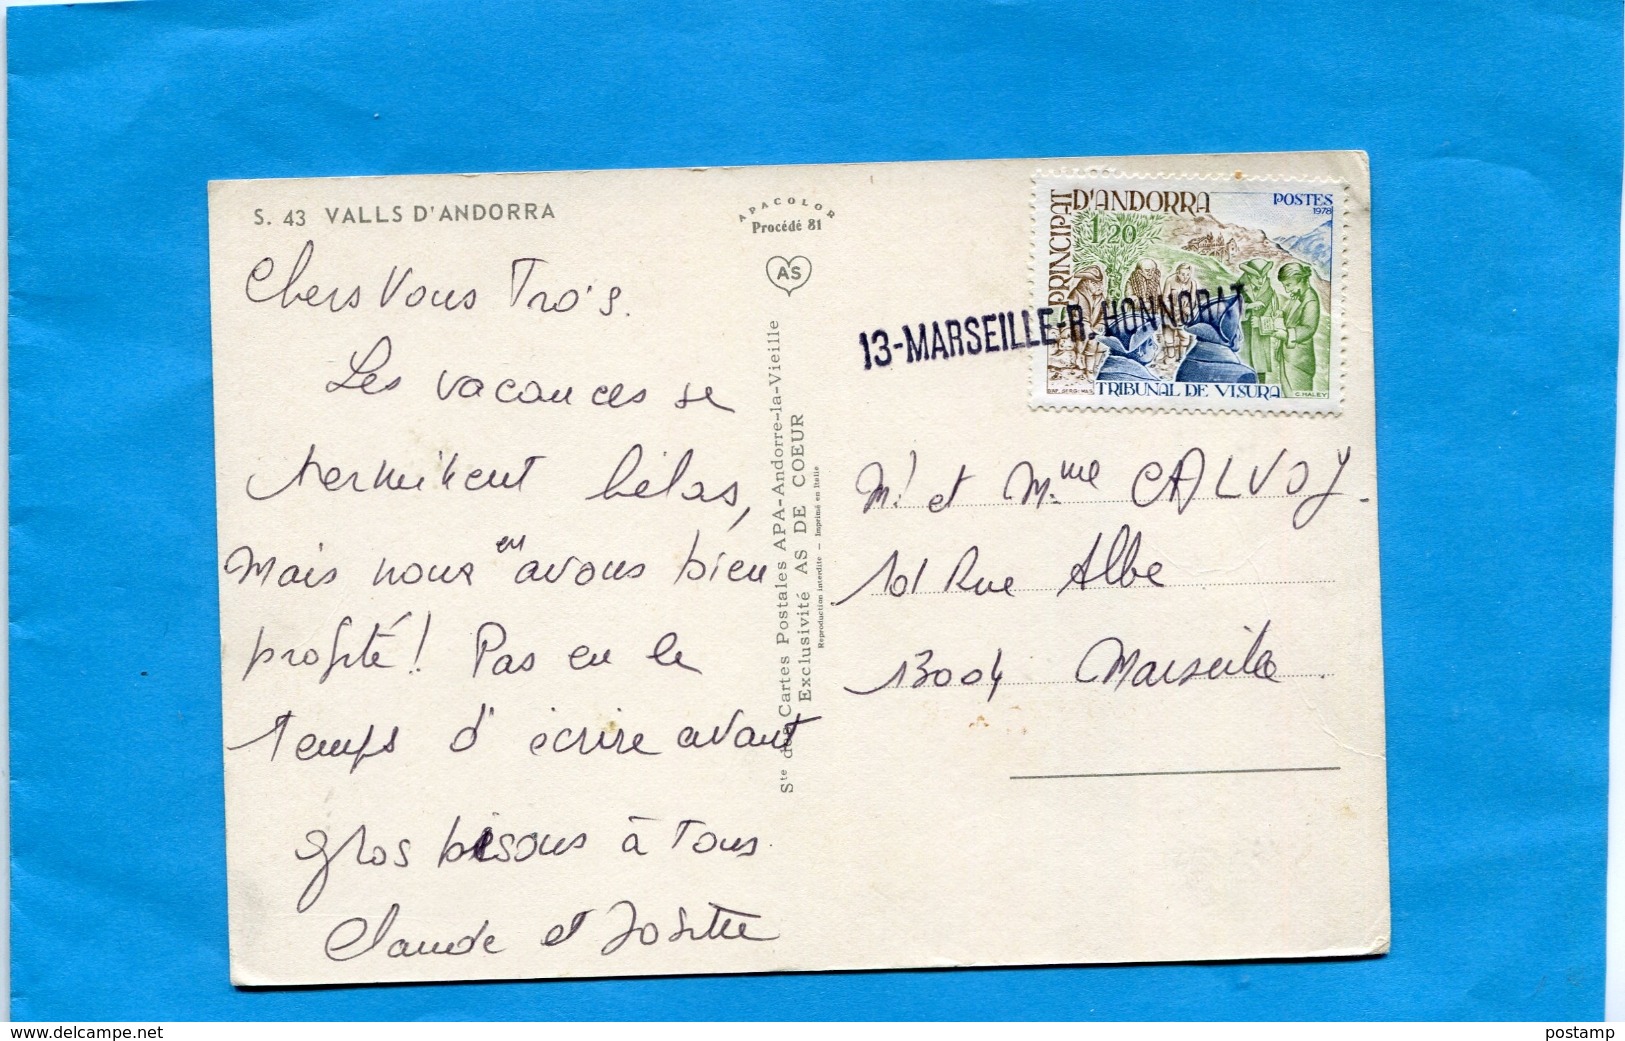 S. 43 VALLS D'ANDORRA
APACOLOR
Procédé 81
AS
Chers Vous Trois.
Les vacances se
terminent hélas,
Mais nous en avons bien
profité ! Pas eu le
temps d'écrire avant
gros bisous à Tous.
Claude et Josette
Ste des Cartes Postales APA-Andorre-la-Vieille
Exclusivité AS DE COEUR
Reproduction interdite - Imprimé en Italie
PRINCIPAT D'ANDORRA
POSTES
1978
1,20
TRIBUNAL DE VISURA
C. HALEY
13-MARSEILLE-R. HONNORAT
Mr et Mme CALVOY.
101 Rue Albe
13004 Marseille.
delcampe.net
postamp